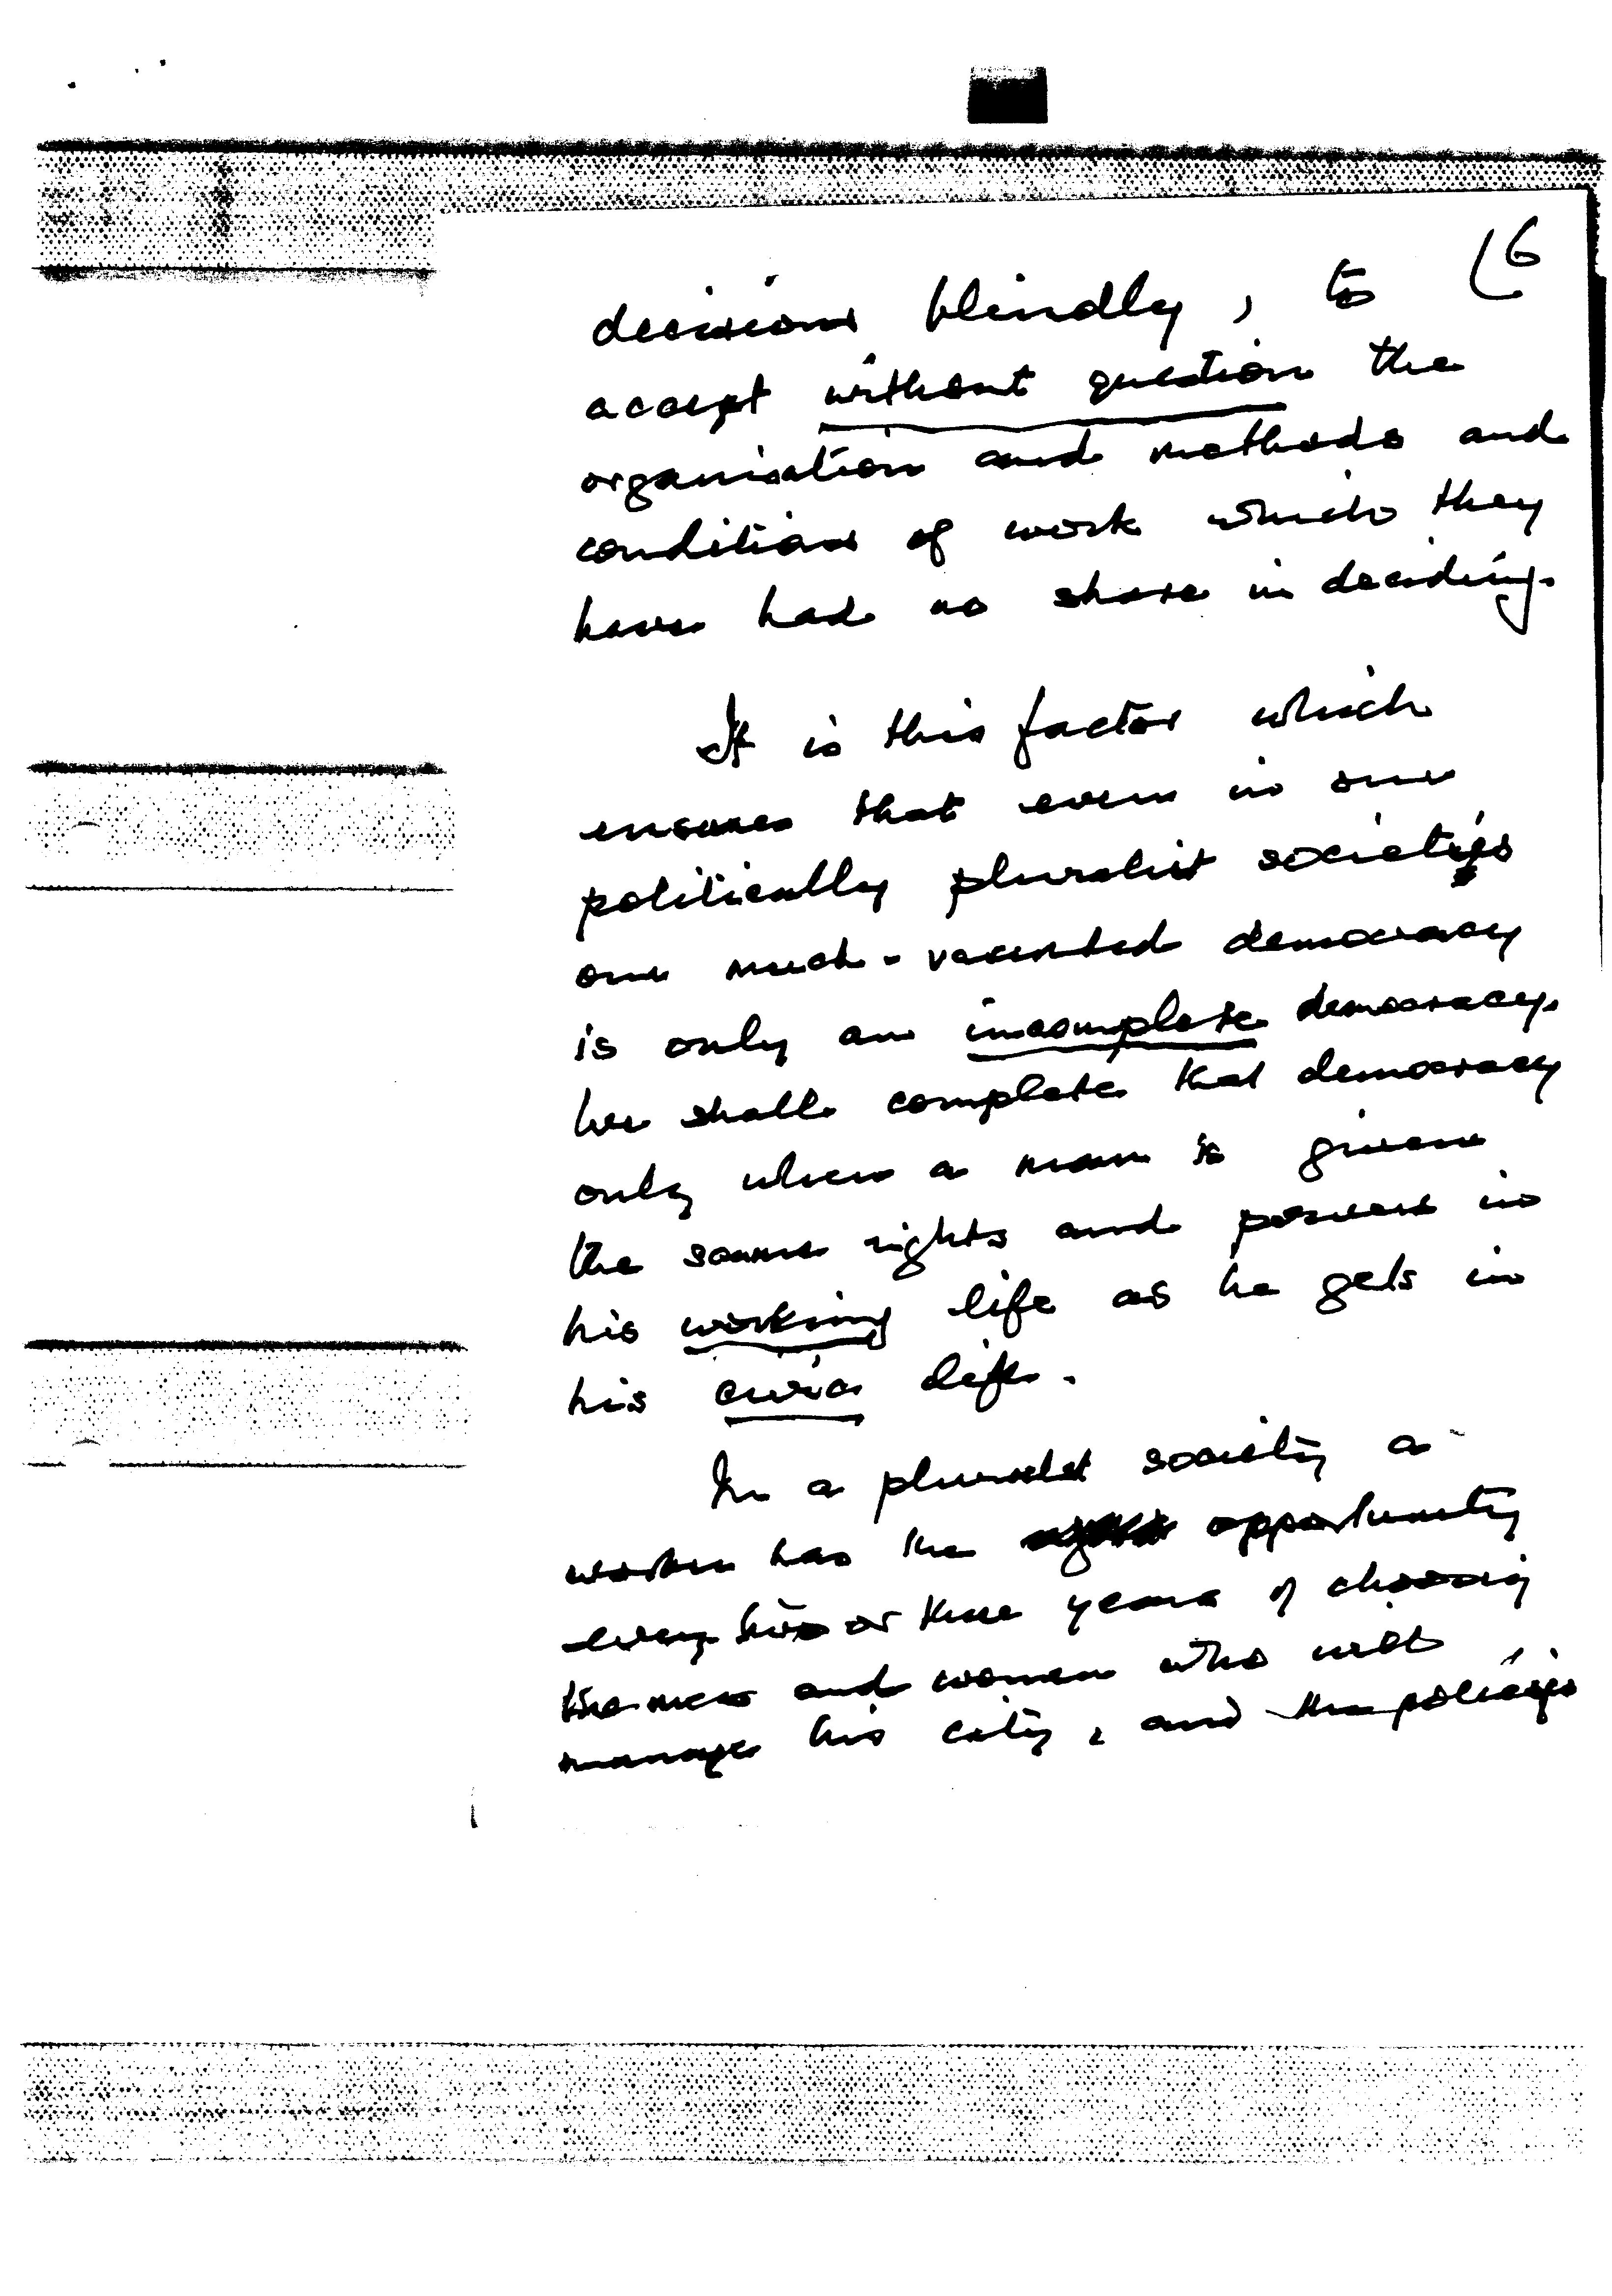 6
decisions blindly, to
accept without question the
organisation and methods and
conditions of work which they
have had no share in deciding.
It is this factor which
ensures that even in our
politically pluralist societies
our much-vaunted democracy
is only an incomplete democracy.
We shall complete that democracy
only when a man is given
the same rights and powers in
his working life as he gets in
his civic life.
In a pluralist society a
worker has the opportunity
every two or three years of choosing
the men and women who will
manage his city, and the policies